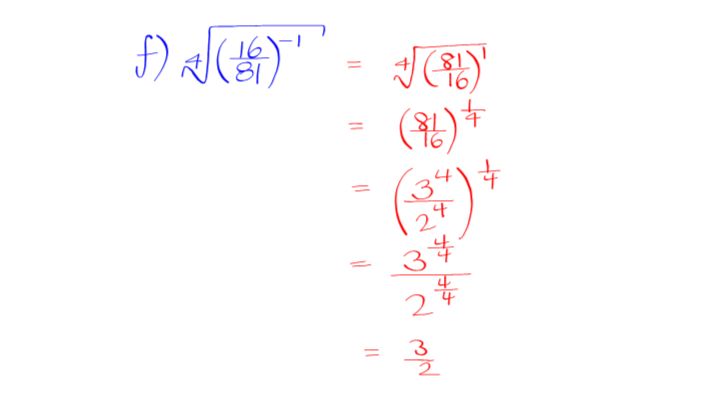 f) ∜((16/81)^-1) = ∜((81/16)^1)
= (81/16)^(1/4)
= (3^4/2^4)^(1/4)
= 3^(4/4)/2^(4/4)
= 3/2